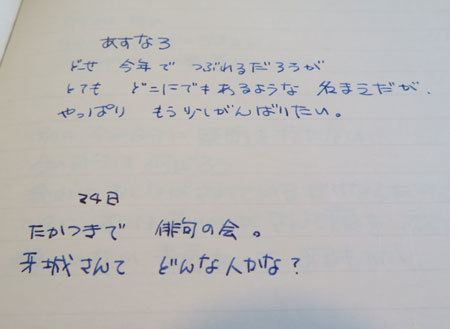 あすなろ
どせ 今年で つぶれるだろうが
とても どこにでもあるような 名まえだが、
やっぱり もう少しがんばりたい。
24日
たかつきで 俳句の会。
牙城さんて どんな人かな?